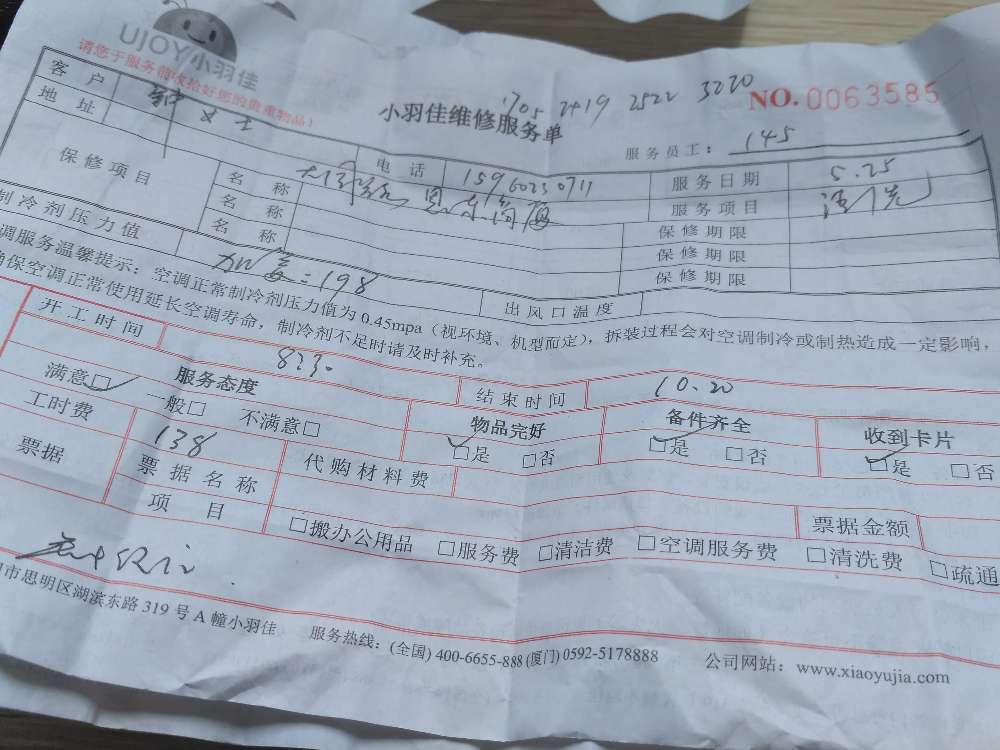 UJOY小羽佳
请您于服务前收拾好您的贵重物品!
小羽佳维修服务单
1705 2419 2522 3220
NO. 0063585
服务员工: 145
客户 女士
地址
电话 15960230711
服务日期 5.25
保修项目
名称
服务项目 清洗
名称
保修期限
名称
保修期限
保修期限
制冷剂压力值
=198
出风口温度
调服务温馨提示: 空调正常制冷剂压力值为 0.45mpa (视环境、机型而定), 拆装过程会对空调制冷或制热造成一定影响,
确保空调正常使用延长空调寿命, 制冷剂不足时请及时补充。
开工时间 830
结束时间 10.20
服务态度
满意□ 一般□ 不满意□
物品完好
□是 □否
备件齐全
□是 □否
收到卡片
□是 □否
工时费 138
代购材料费
票据
票据名称
票据金额
项目
□搬办公用品 □服务费 □清洁费 □空调服务费 □清洗费 □疏通
市思明区湖滨东路 319 号 A 幢小羽佳 服务热线: (全国) 400-6655-888 (厦门) 0592-5178888 公司网站: www.xiaoyujia.com